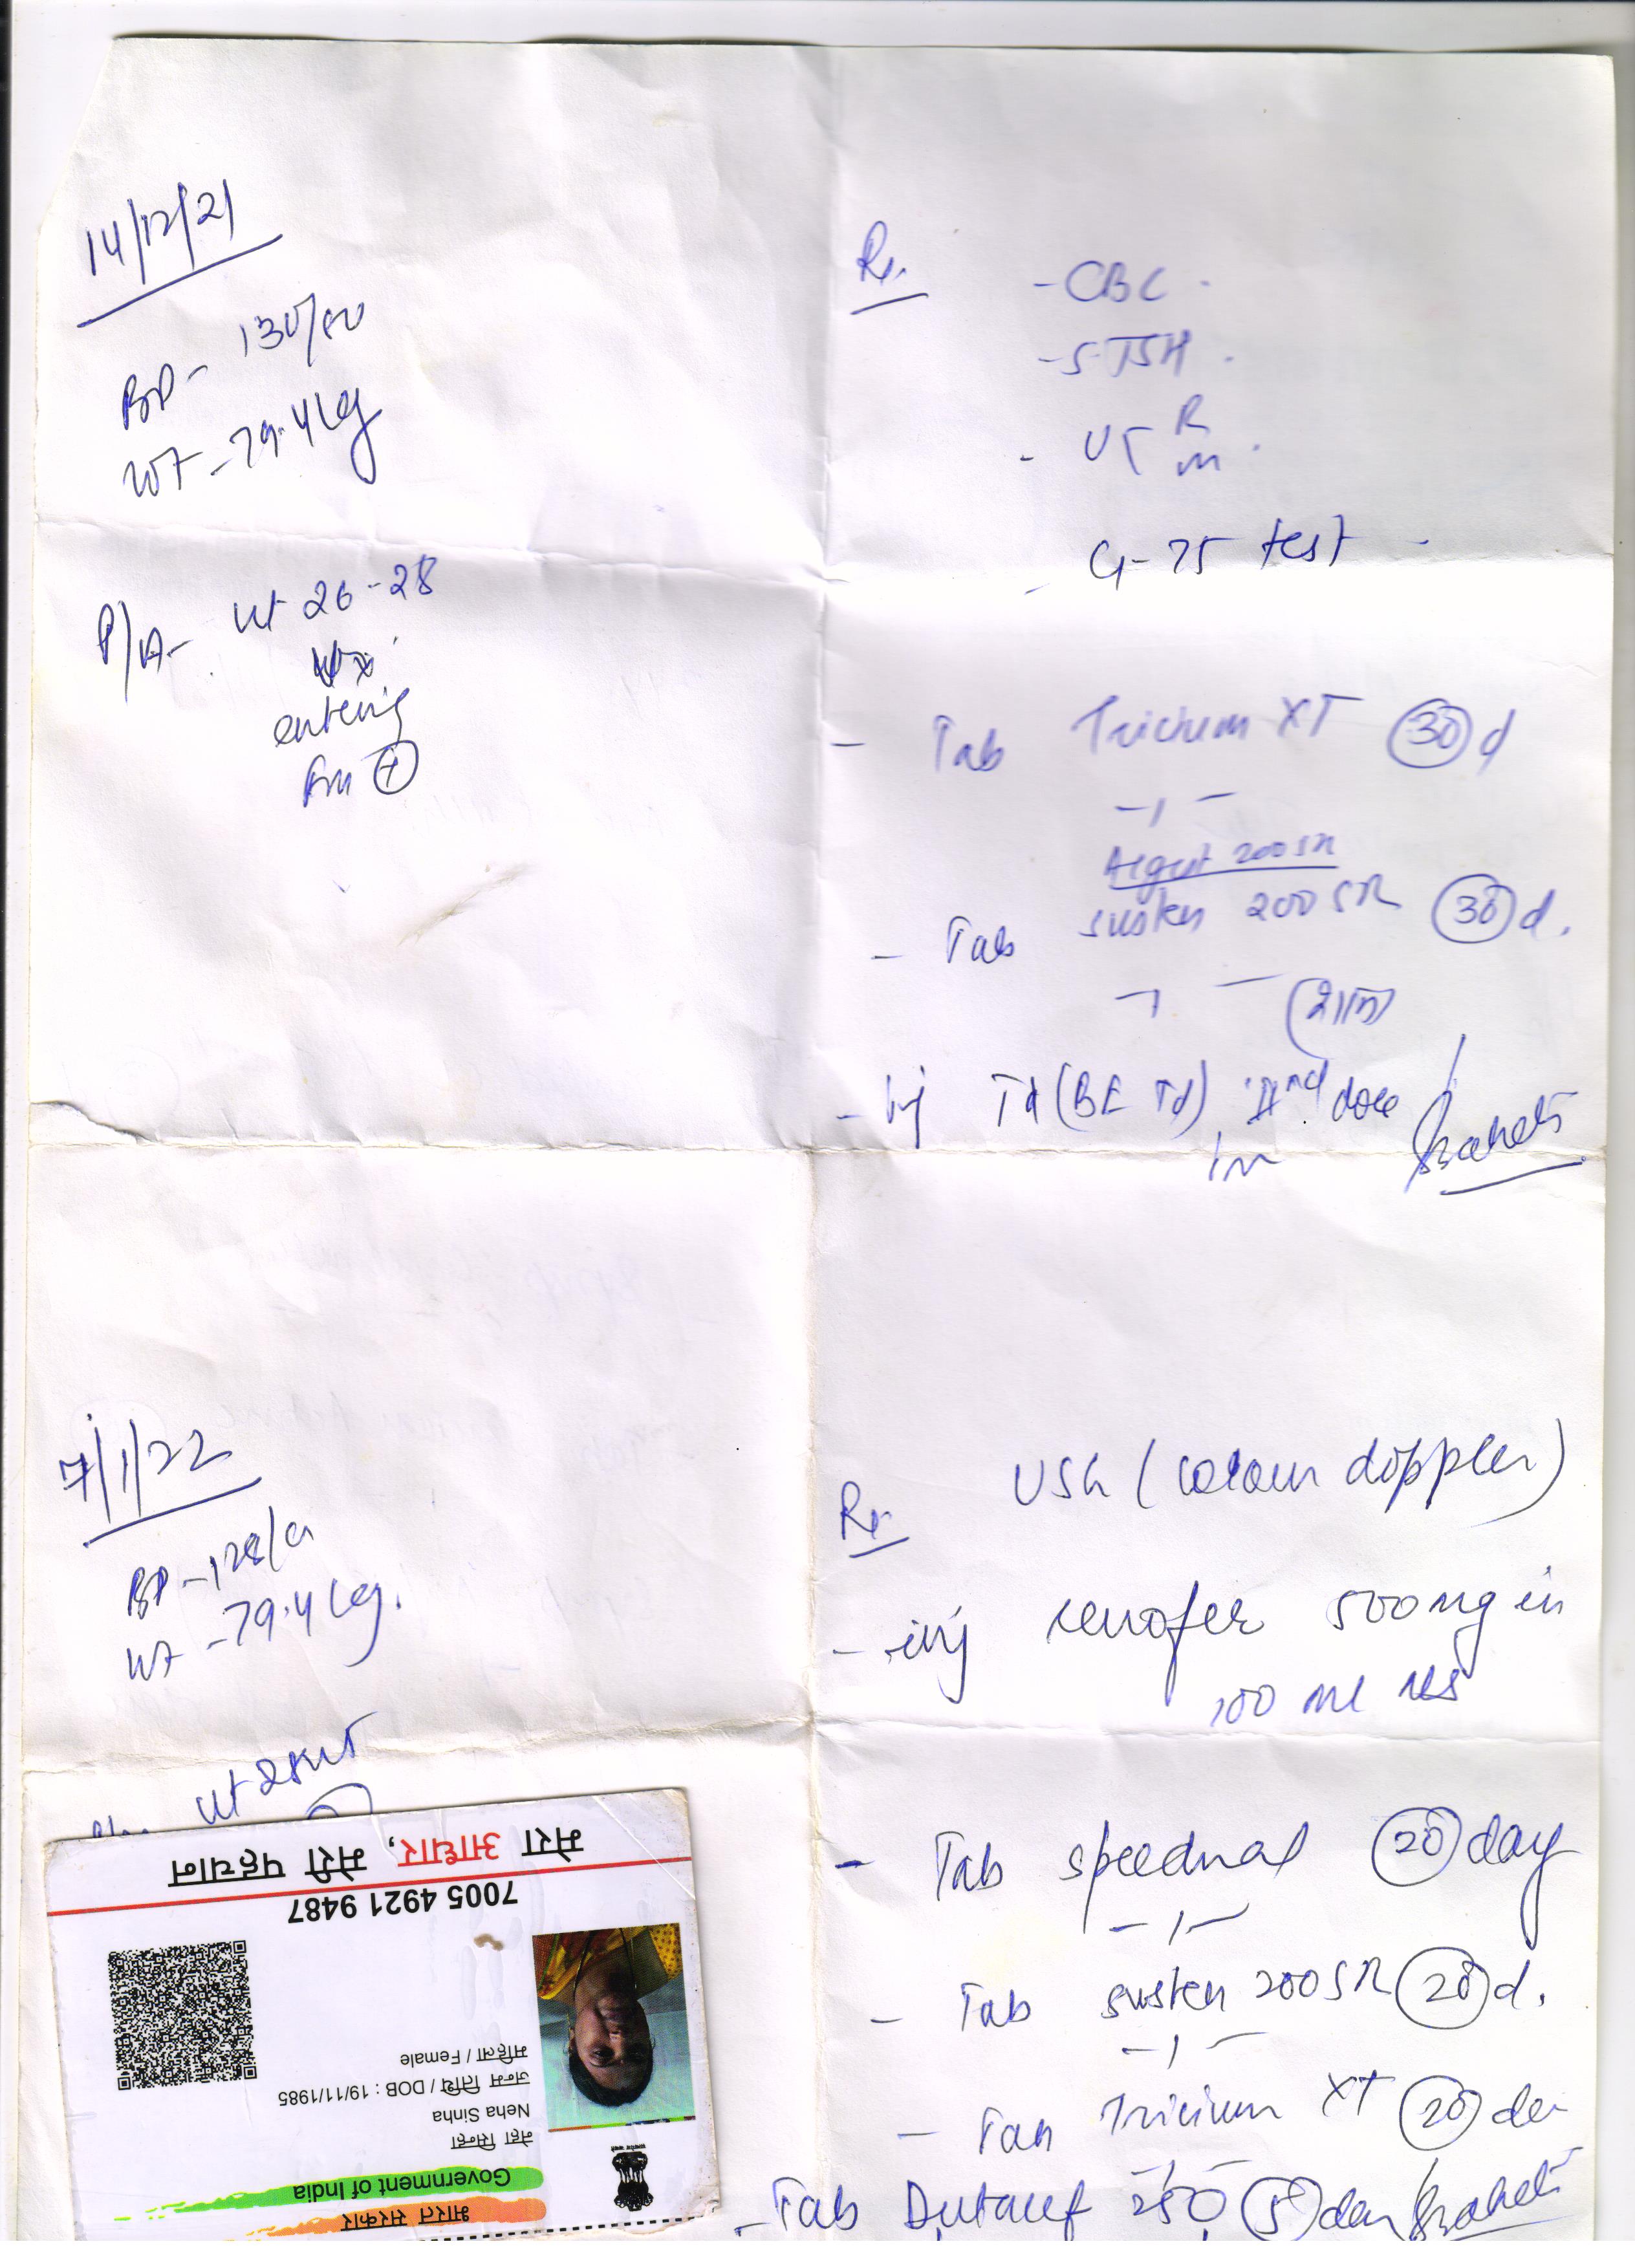 14/12/21
BP- 130/80
wt - 79.4 kg
P/A- ut 26-28
enteric
Fm +
Rx
- CBC
- S. TSH
- U R
m
- G-75 test
- Tab Tricium XT 30 d
- 1 -
200 SR
- Tab susten 200 SR 30 d.
- 1 -
- inj Td (BE Td) IInd dose
Im
7/1/22
BP - 128/
wt - 79.4 kg.
ut 28
Rx
USG (colour doppler)
- inj 500 mg in
100 ml NS
- Tab 20 day
- 1 -
- Tab susten 200 SR 20 d.
- 1 -
- Tab Tricium XT 20 da
- 1 -
- Tab 250 5 day
भारत सरकार
Government of India
नेहा सिन्हा
Neha Sinha
जन्म तिथि / DOB : 19/11/1985
महिला / Female
7005 4921 9487
मेरा आधार, मेरी पहचान